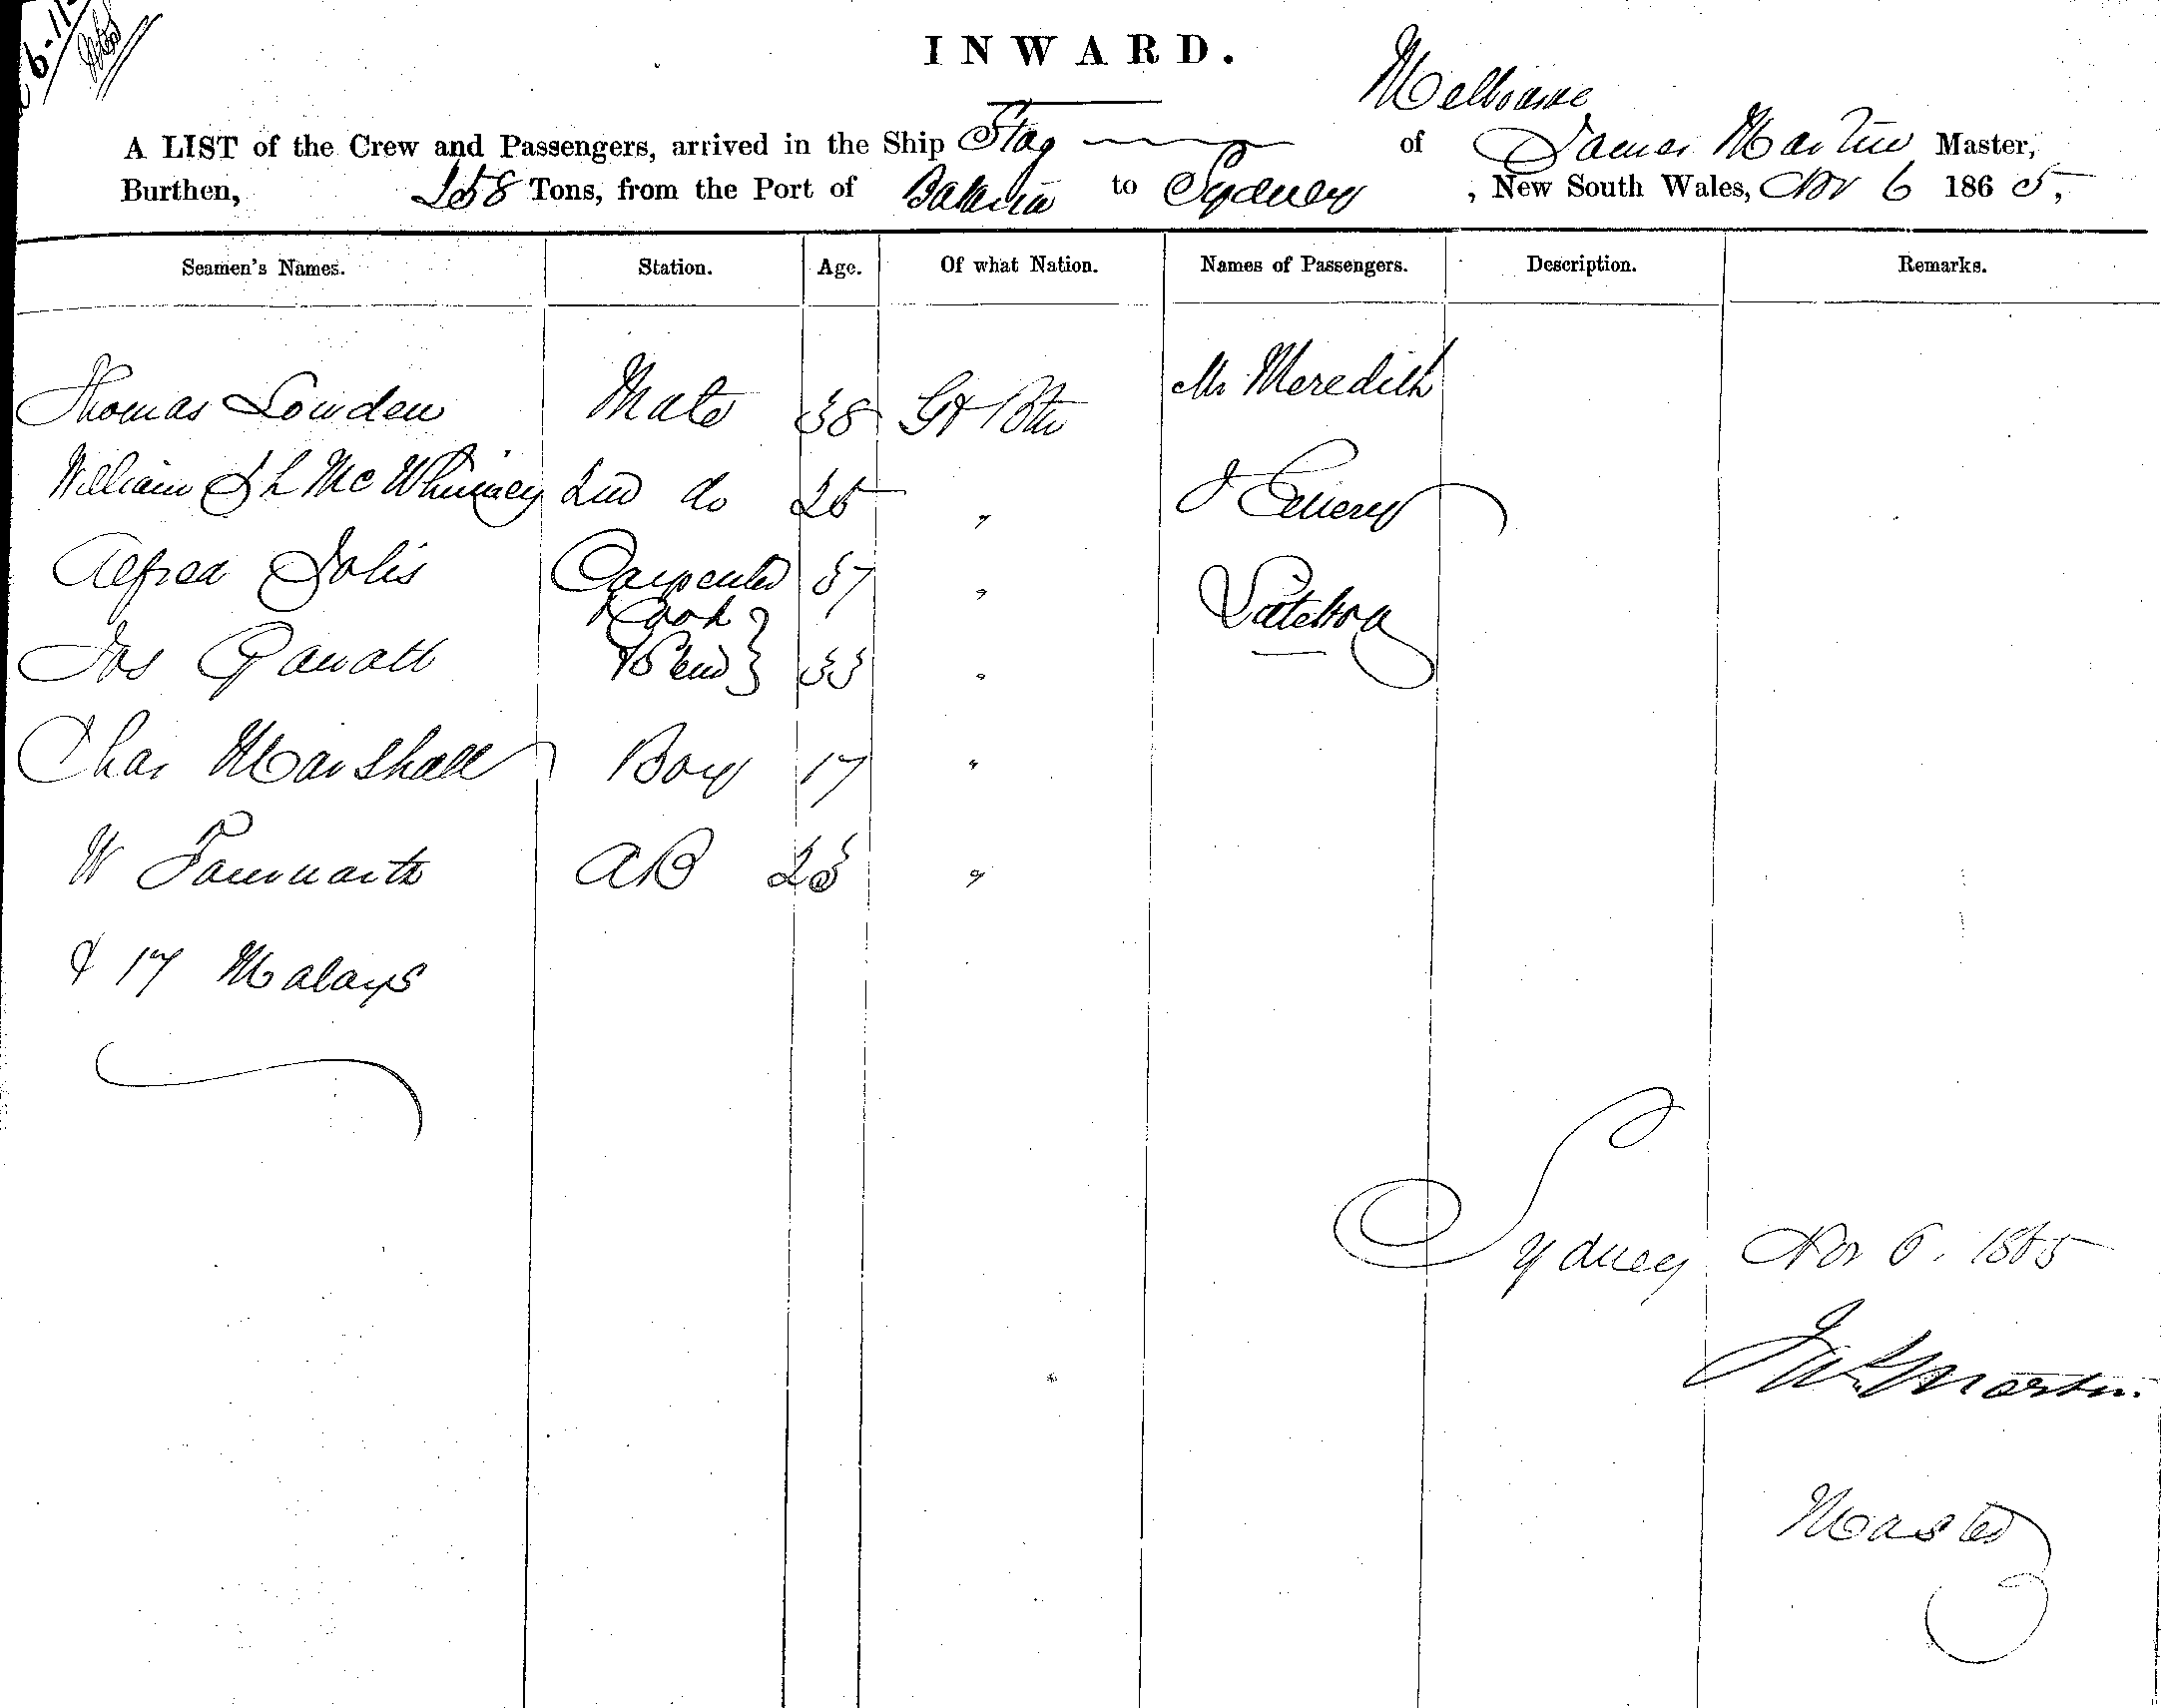 6-11-
INWARD.
Melbourne
A LIST of the Crew and Passengers, arrived in the Ship Stag of James Martin Master,
Burthen, 258 Tons, from the Port of Batavia to Sydney, New South Wales, Nov 6 1865,
Seamen's Names. Station. Age. Of what Nation. Names of Passengers. Description. Remarks.
Thomas Lowden Mate 38 Gt Btn Mr Meredith
William J L McWhinney 2nd do 25 " J
Alfred Jolis Carpenter 37 "
Jos Cook & Stewd } 33 "
Chas Marshall Boy 17 "
W AB 23 "
& 17 Malays
Sydney Nov 6. 1865
Martin
Master